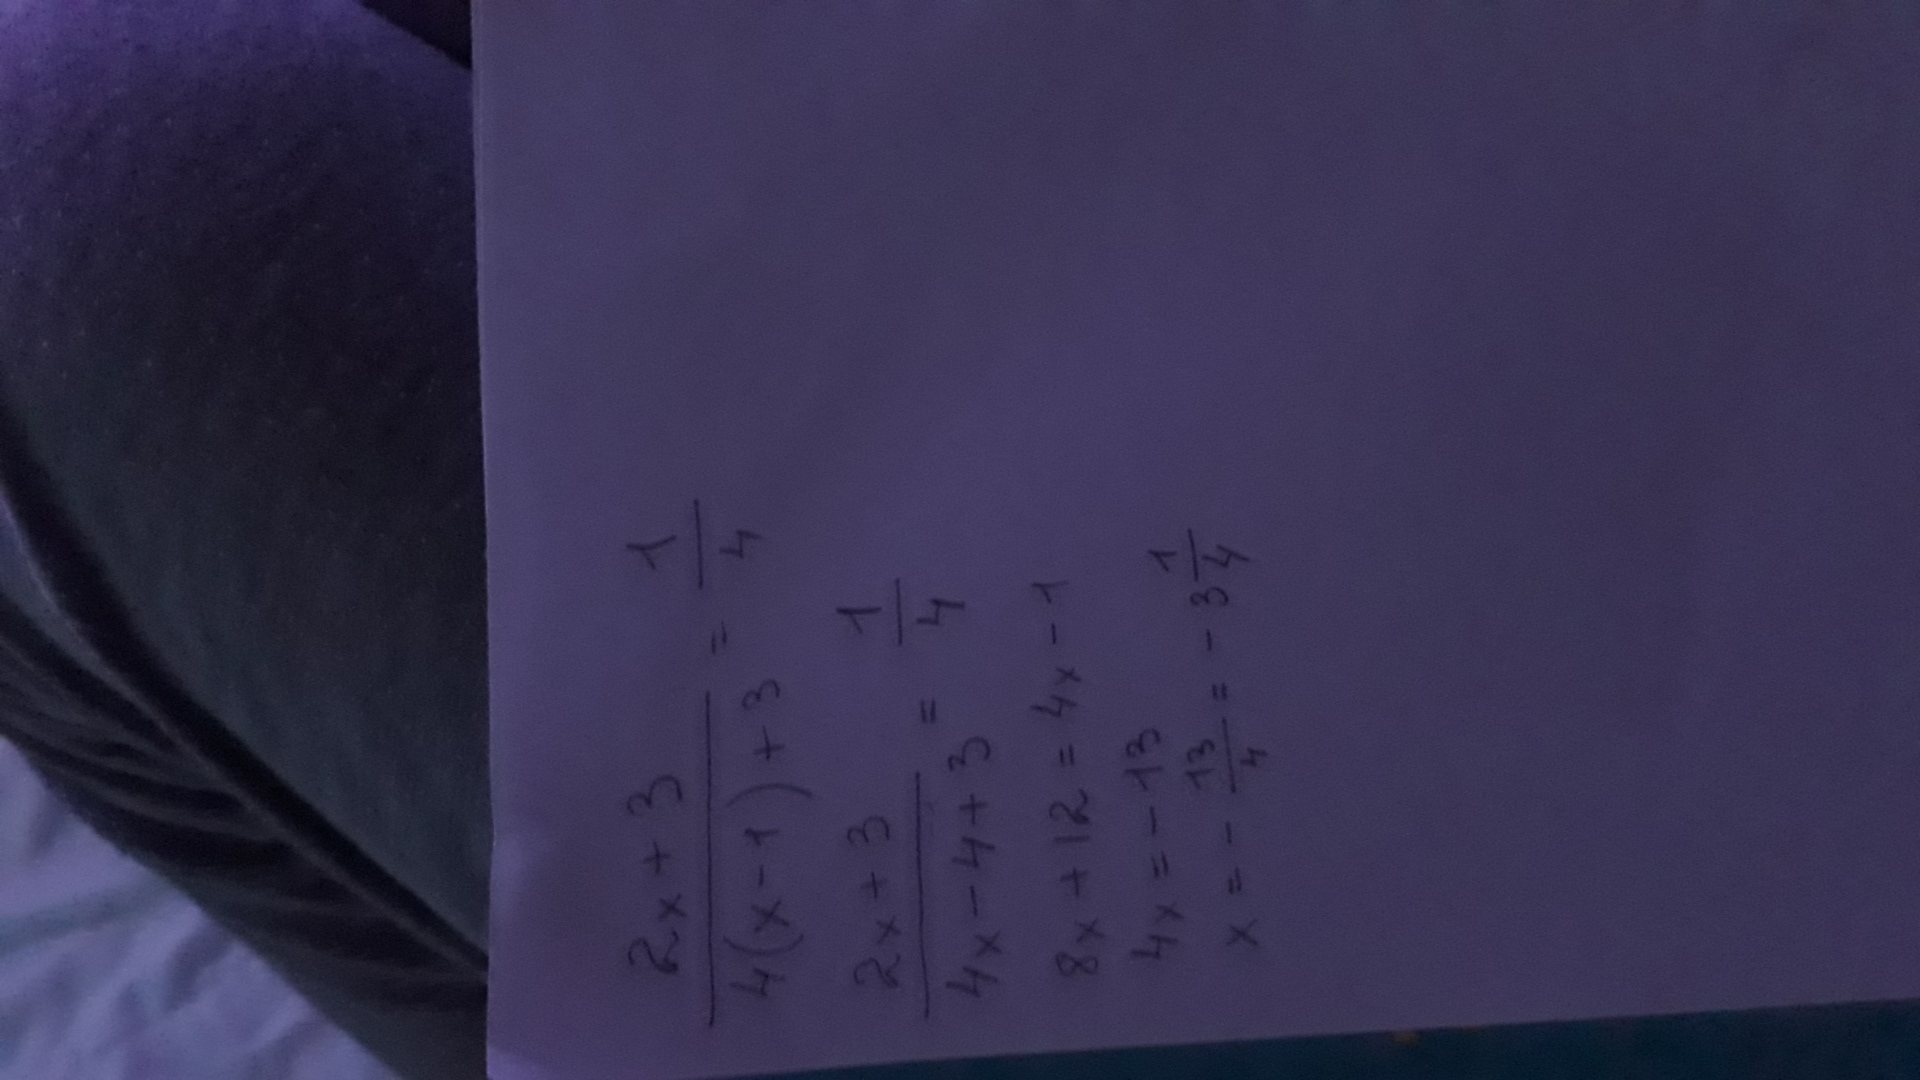 2x + 3 / 4(x - 1) + 3 = 1/4
2x + 3 / 4x - 4 + 3 = 1/4
8x + 12 = 4x - 1
4x = - 13
x = - 13/4 = - 3 1/4